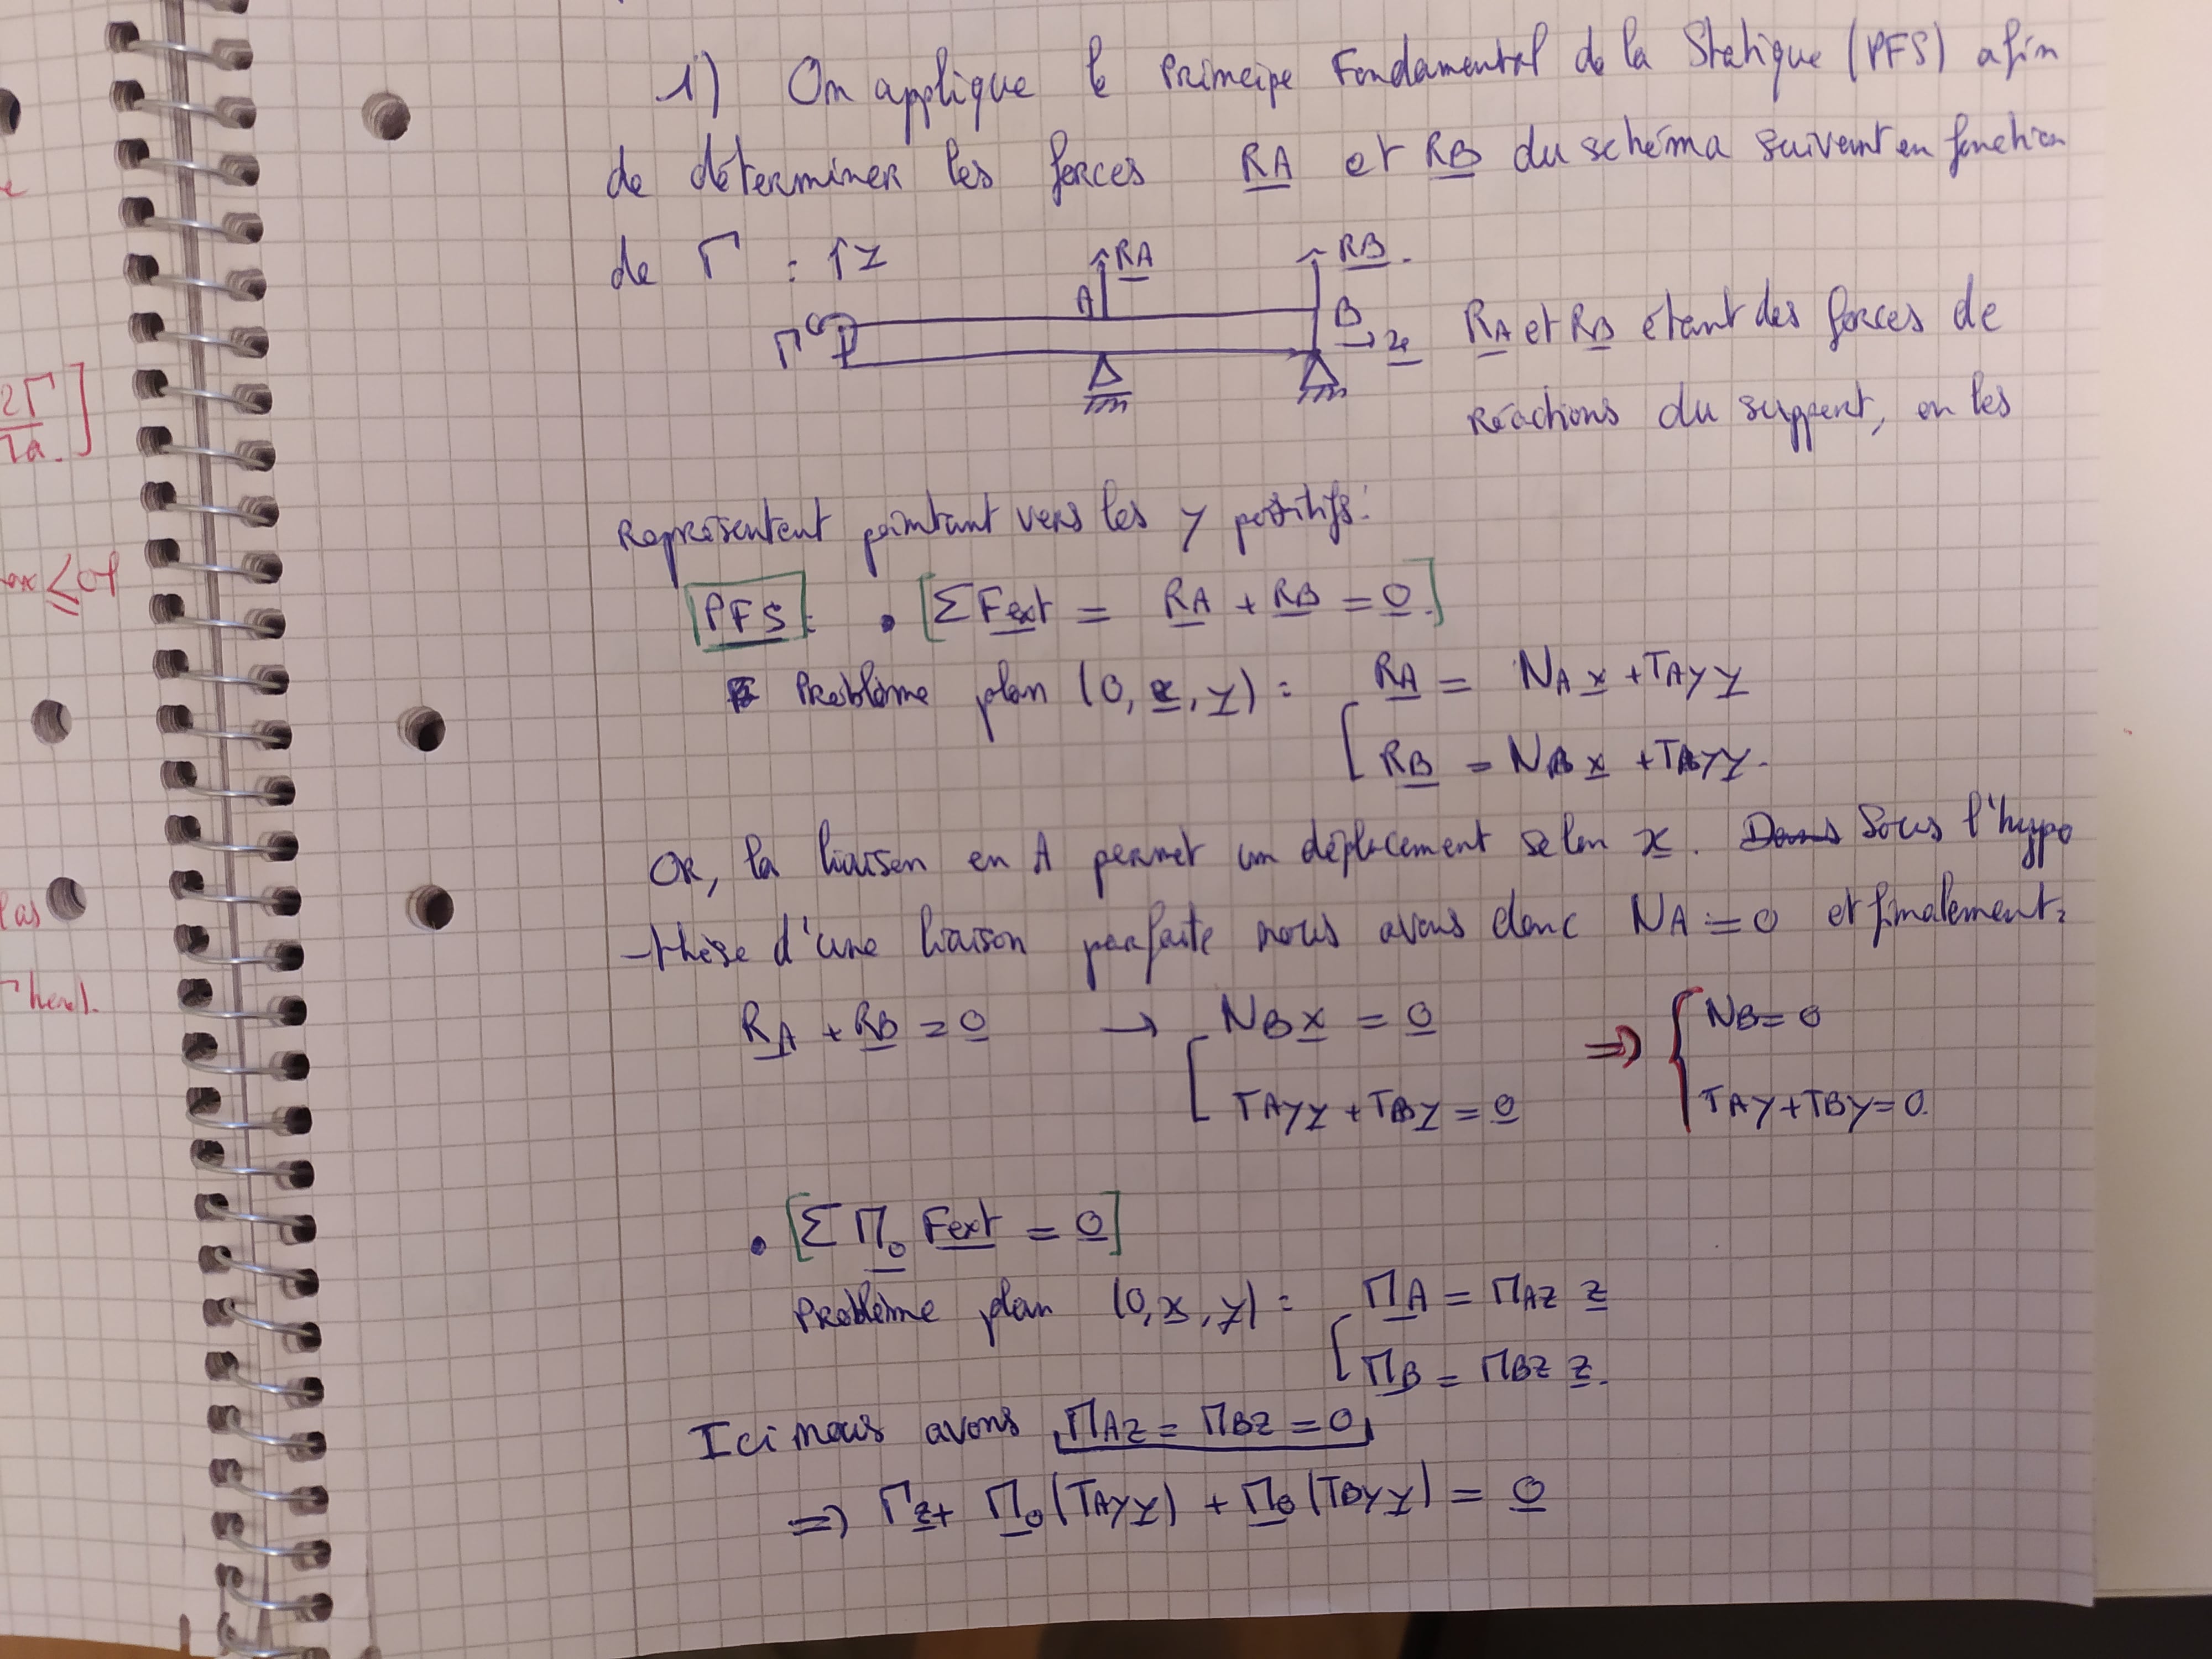 1) On applique le Principe Fondamental de la Statique (PFS) afin
de déterminer les forces RA et RB du schéma suivant en fonction
de Γ : Γz
RA
RB.
A
B
Γ
x
RA et RB étant des forces de
réactions du support, on les
représentent pointant vers les y positifs:
PFS: • [ΣFext = RA + RB = 0.]
Problème plan (0, x, y) : RA = NA x + TAY y
RB = NB x + TBY y.
Or, la liaison en A permet un déplacement selon x. Sous l'hypo
-thèse d'une liaison parfaite nous avons donc NA = 0 et finalement:
RA + RB = 0 → NB x = 0 ⇒ NB = 0
TAY y + TB y = 0 TAY + TBY = 0.
• [Σ M0 Fext = 0]
Problème plan (0, x, y) : MA = MAZ z
MB = MBZ z.
Ici nous avons MAZ = MBZ = 0
⇒ Γz + M0 (TAY y) + M0 (TBY y) = 0
2Γ
]
≤ σ